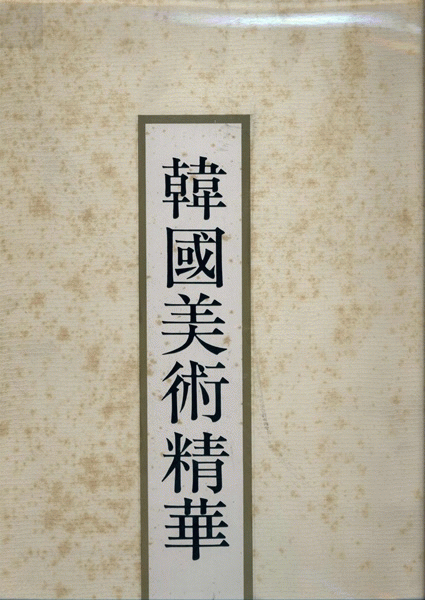 韓國美術精華